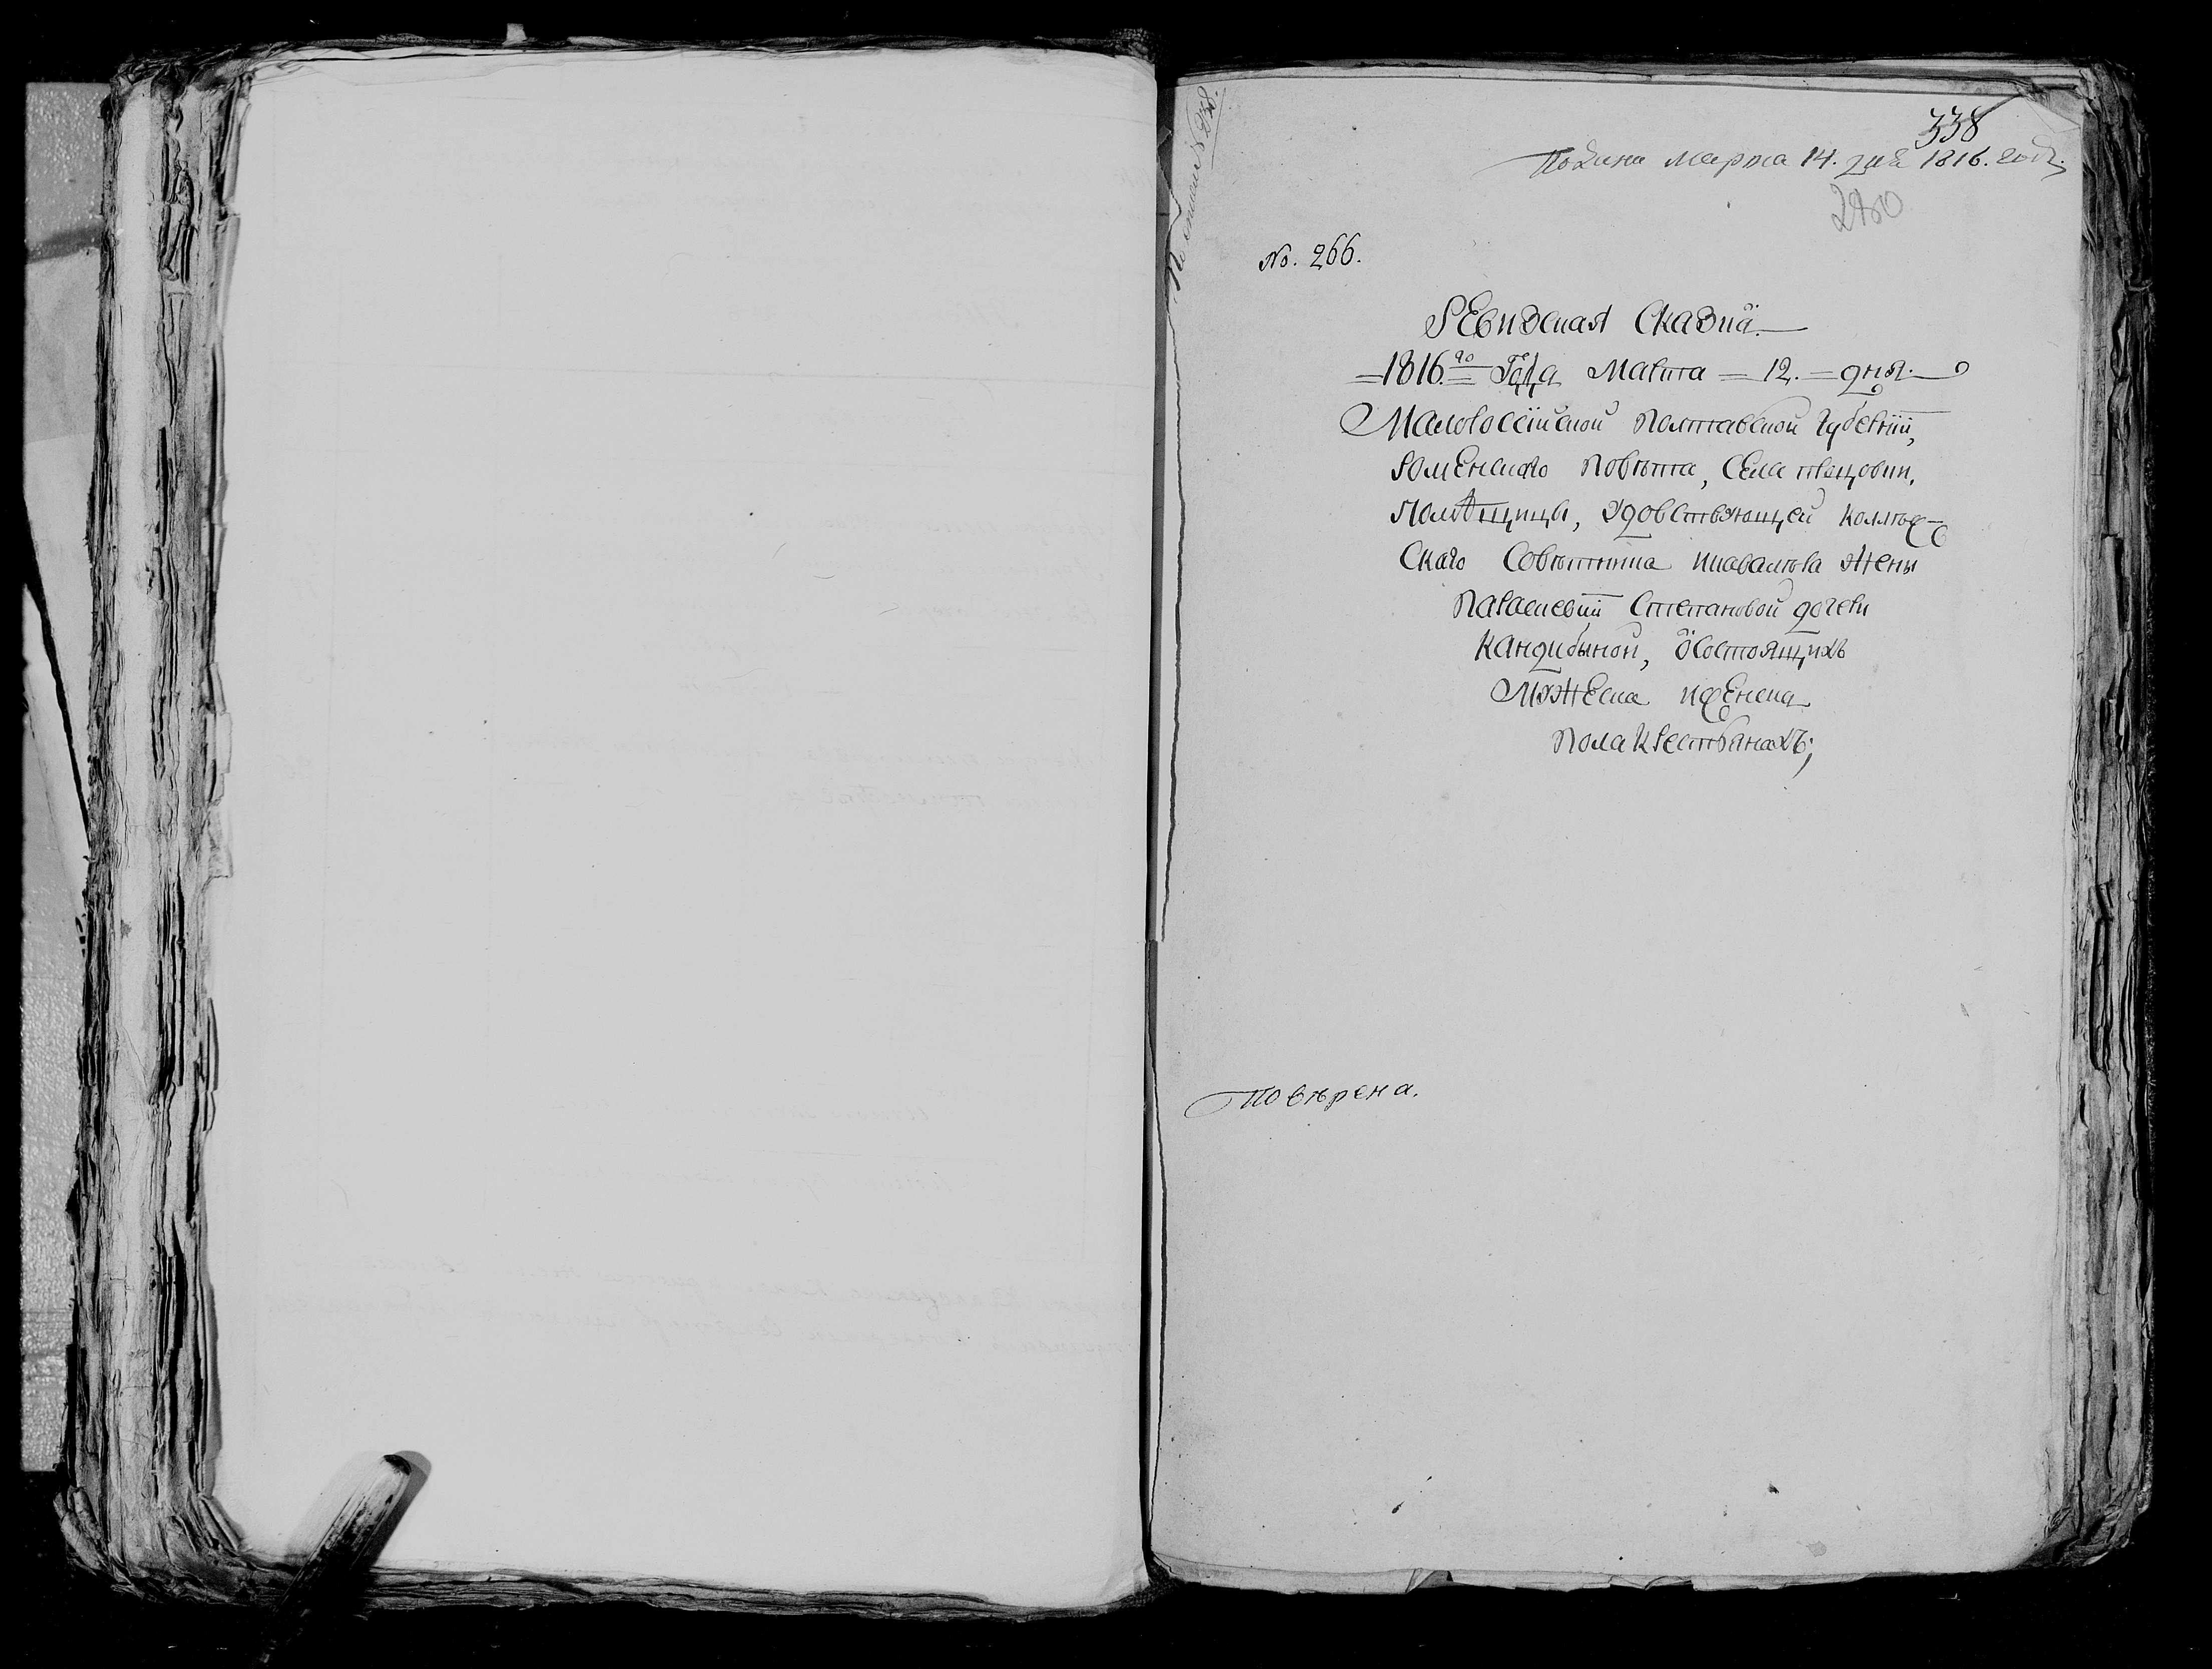 338
Подана Марта 14. дня 1816. года.
280
No. 266.
Ревизская Сказка
1816.го Года Марта 12. дня.
Малороссійской Полтавской Губерніи,
Роменского Повѣта, Села
Помѣщицы, Удовствующей Коллеж-
Скаго Совѣтника жены
Параскевіи Степановой дочери
Кандибиной, Осостоящихъ
Мужеска и женска
Пола Крестьянахъ;
Повѣрена.